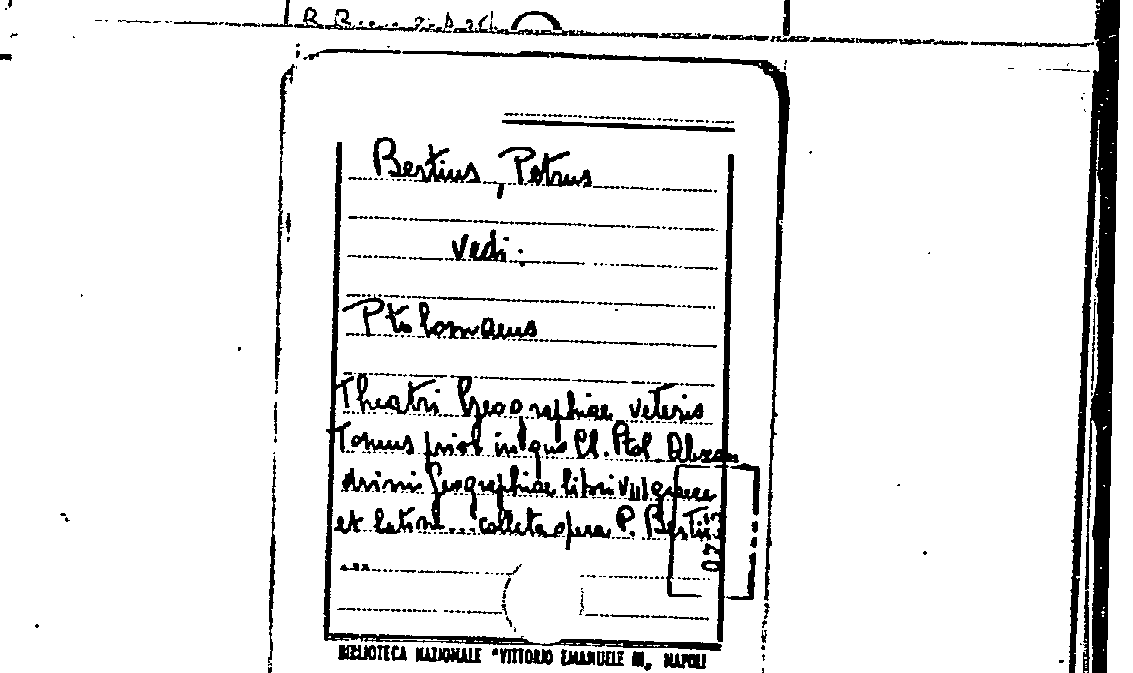 Bertius, Petrus
vedi:
Ptolomaeus
Theatri Geographiae veteris
Tomus prior in quo Cl. Ptol. Alexan
drini Geographiae libri VIII graece
et latine... collecta opera P. Bertii
...
BIBLIOTECA NAZIONALE "VITTORIO EMANUELE III, NAPOLI